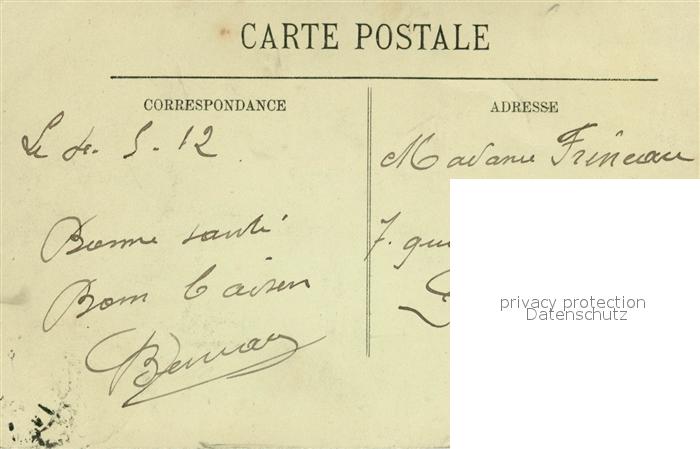 CARTE POSTALE
CORRESPONDANCE
Le 4. 5. 12
Bonne santé
Bons baisers
ADRESSE
Madame Frineau
7. qu
privacy protection
Datenschutz